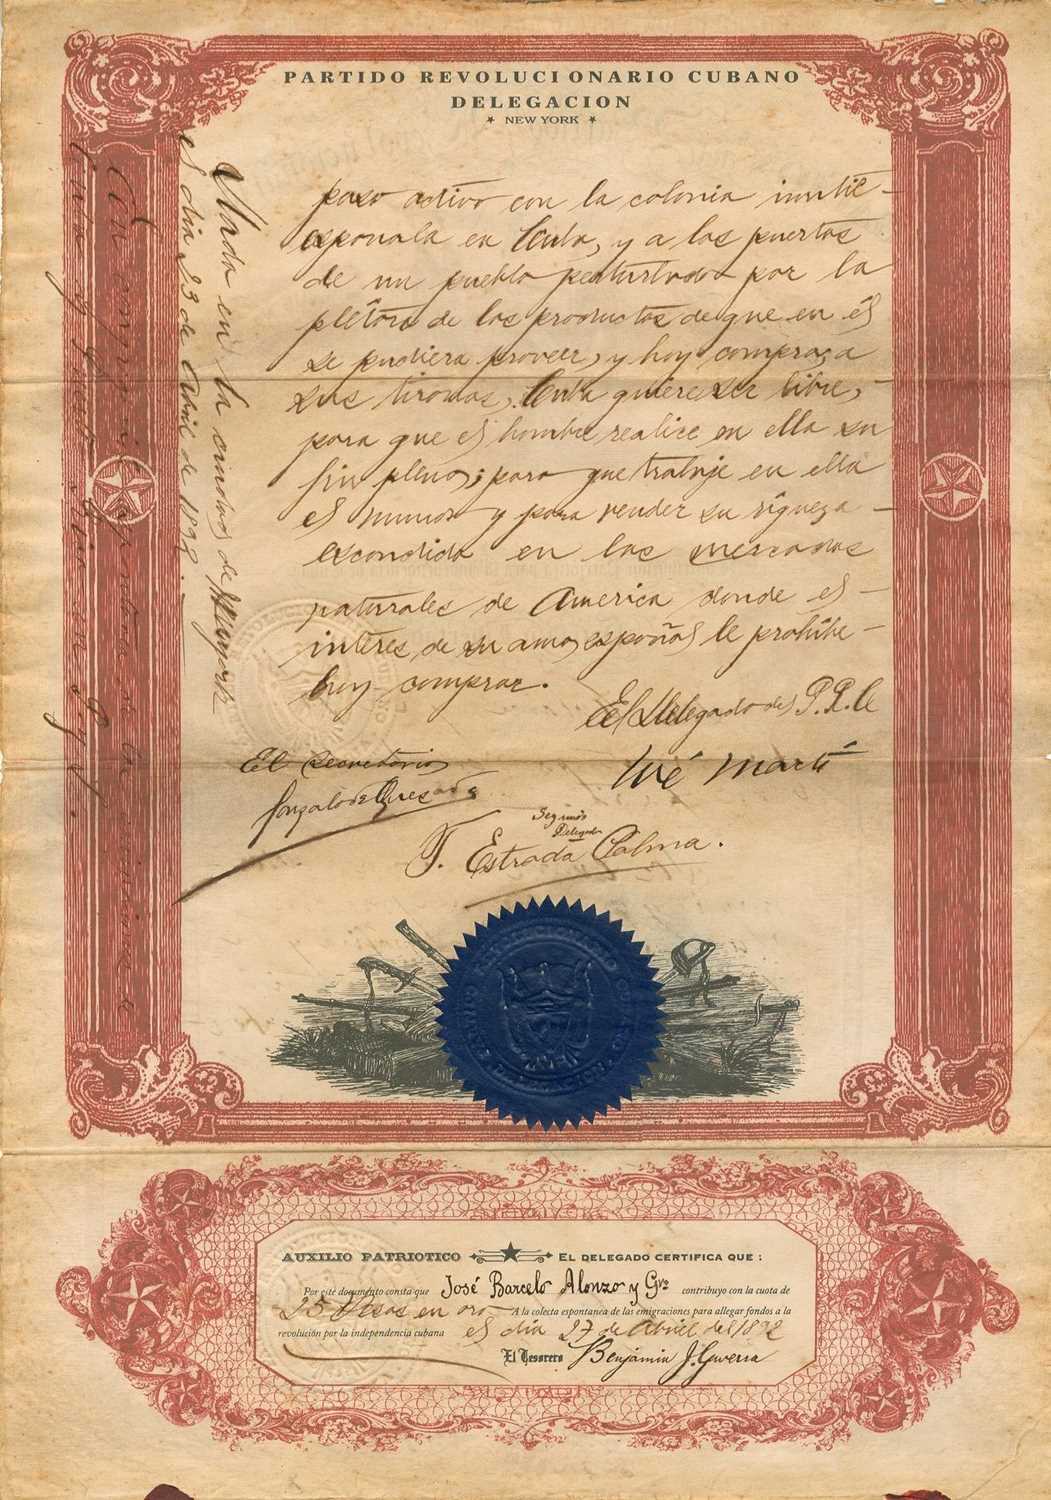 PARTIDO REVOLUCIONARIO CUBANO
DELEGACION
★ NEW YORK ★
paso activo con la colonia inutil
española en Cuba, y a las puertas
de un pueblo perturbado por la
plétora de los productos de que en él
se pudiera proveer, y hoy compra, a
sus tiranos, Cuba quiere ser libre,
para que el hombre realice en ella su
fin pleno; para que trabaje en ella
el mundo y para vender su riqueza
escondida en los mercados
naturales de America donde el
interes de su amo español le prohibe
hoy comprar.
El Delegado del P.R.C
José Martí
El Secretario
Gonzalo de Quesada
Segundo
Delegado
T. Estrada Palma.
Dada en la ciudad de
el dia 23 de Abril de 189
AUXILIO PATRIOTICO ★ EL DELEGADO CERTIFICA QUE :
Por esté documento consta que José Barcelo Alonzo y Gvo contribuyo con la cuota de
25 Pesos en oro A la colecta espontanea de las emigraciones para allegar fondos a la
revolución por la independencia cubana el dia 27 de Abril del 1892
El Tesorero Benjamin J. Guerra